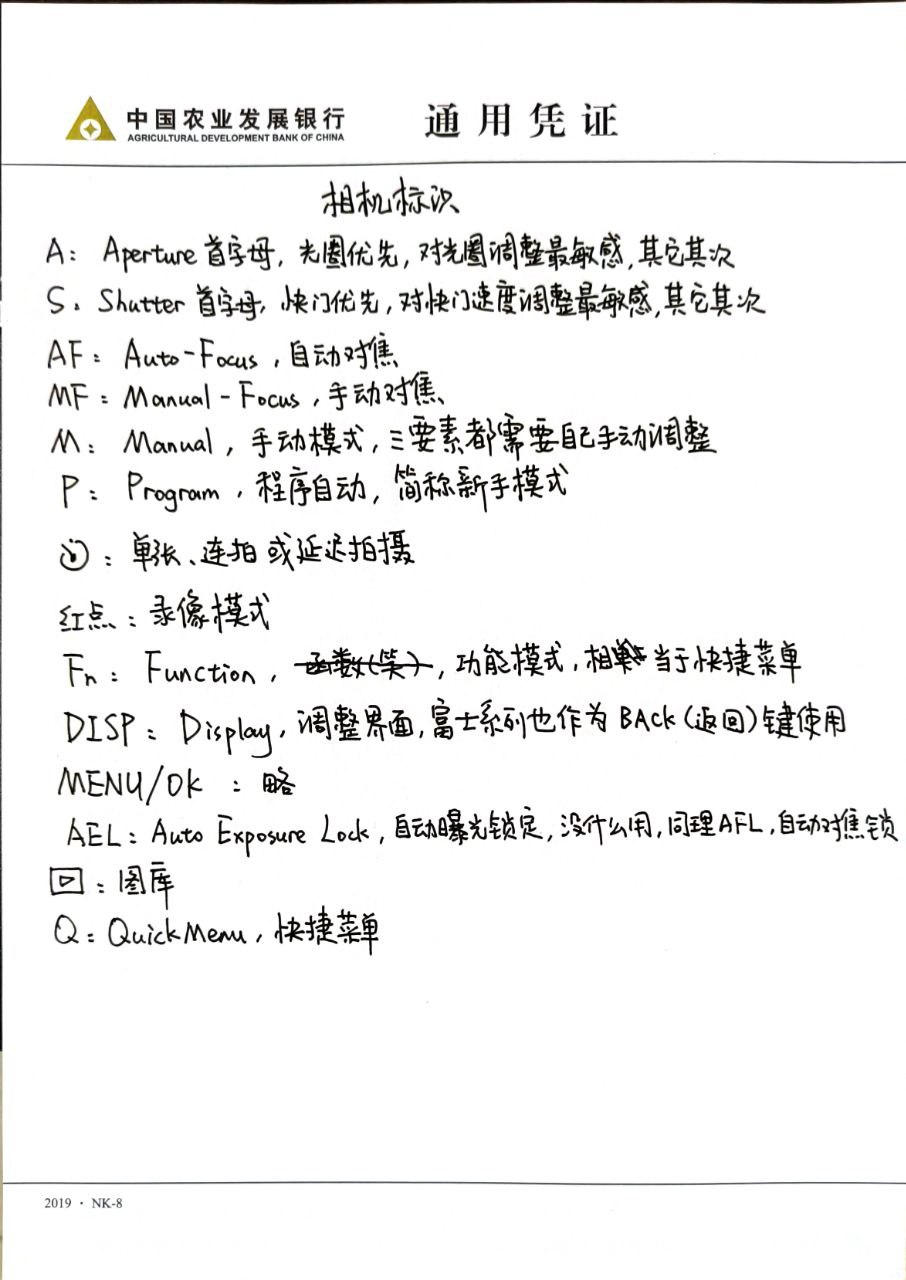 中国农业发展银行
AGRICULTURAL DEVELOPMENT BANK OF CHINA
通用凭证
相机标识
A: Aperture 首字母, 光圈优先, 对光圈调整最敏感, 其它其次
S: Shutter 首字母, 快门优先, 对快门速度调整最敏感, 其它其次
AF: Auto-Focus, 自动对焦
MF: Manual-Focus, 手动对焦
M: Manual, 手动模式, 三要素都需要自己手动调整
P: Program, 程序自动, 简称新手模式
: 单张、连拍或延迟拍摄
红点: 录像模式
Fn: Function, 函数(笑), 功能模式, 相当于快捷菜单
DISP: Display, 调整界面, 富士系列也作为 BACK (返回) 键使用
MENU/OK : 略
AEL: Auto Exposure Lock, 自动曝光锁定, 没什么用, 同理AFL, 自动对焦锁
▷: 图库
Q: QuickMenu, 快捷菜单
2019 · NK-8